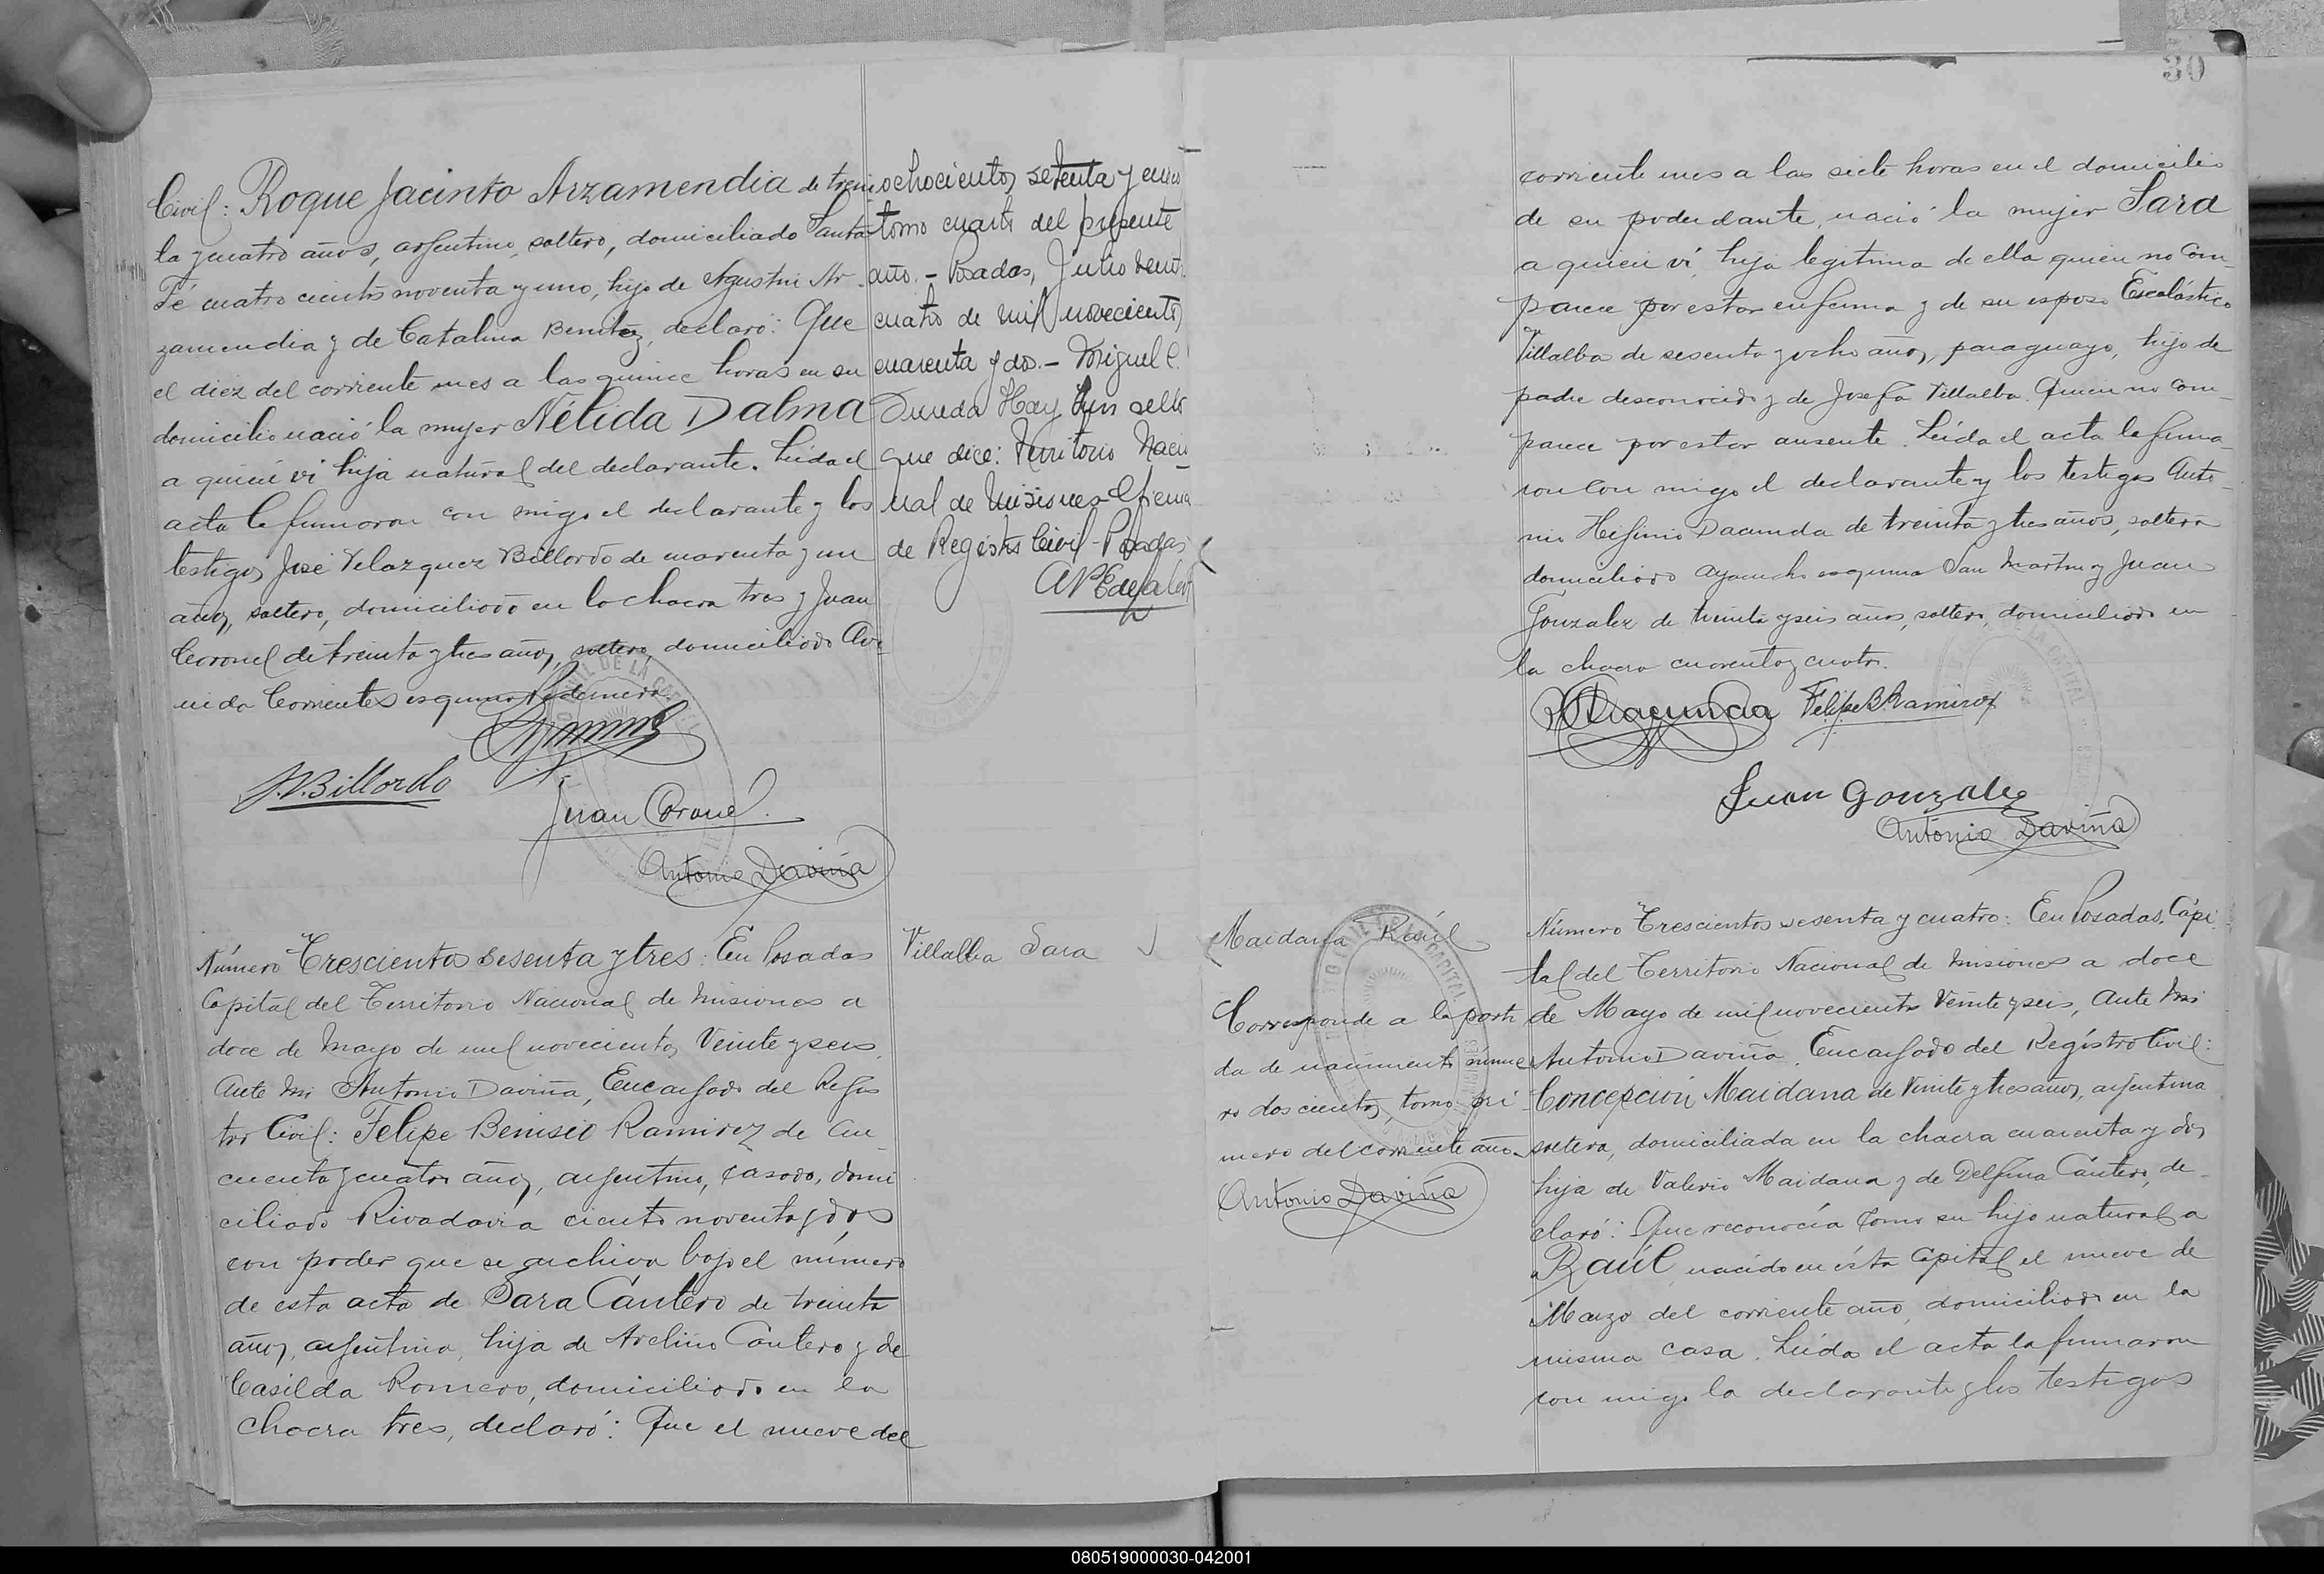 Civil: Roque Jacinto Arzamendia de trein
ta y cuatro años, argentino, soltero, domiciliado Santa
Fé cuatro cientos noventa y uno, hijo de Agustin Ar
zamendia y de Catalina Benitez, declaró: Que
el diez del corriente mes a las quince horas en su
domicilio nació la mujer Nélida Dalma
a quien vi hija natural del declarante. Leida el
acta la firmaron con migo el declarante y los
testigos José Velazquez Billordo de cuarenta y un
años, soltero, domiciliado en la chacra tres y Juan
Coronel de treinta y tres años, soltero, domiciliado Ave
nida Corrientes esquina Pedernera.
J.V. Billordo
Juan Coronel
Antonio Daviña
ochocientos setenta y cinco
tomo cuarto del presente
año. - Posadas, Julio veinti
cuatro de mil novecientos
cuarenta y dos. - Miguel C.
Hay Un sello
que dice: Territorio Nacio
nal de Misiones - Oficina
de Registro Civil - Posadas
Número Trescientos sesenta y tres: En Posadas
Capital del Territorio Nacional de Misiones a
doce de Mayo de mil novecientos Veinte y seis
Ante Mi Antonio Daviña, Encargado del Regis
tro Civil: Felipe Benisio Ramirez de cin
cuenta y cuatro años, argentino, casado, domi
ciliado Rivadavia ciento noventa y dos
con poder que se archiva bajo el número
de esta acta de Sara Cantero de treinta
años, argentina, hija de Avelino Cantero y de
Casilda Romero, domiciliado en la
chacra tres, declaró: Que el nueve del
Villalba Sara
30
corriente mes a las siete horas en el domicilio
de su poderdante, nació la mujer Sara
a quien vi, hija legitima de ella quien no com-
parece por estar enferma y de su esposo Escolástico
Villalba de sesenta y ocho años, paraguayo, hijo de
padre desconocido y de Josefa Villalba. Quien no com-
parece por estar ausente. Leida el acta la firma-
ron con migo el declarante y los testigos Anto-
nio Hifinio Dacunda de treinta y tres años, soltero
domiciliado Ayacucho esquina San Martin y Juan
Gonzalez de treinta y seis años, soltero, domiciliado en
la chacra cuarenta y cuatro.
Dacunda Felipe B Ramirez
Juan Gonzalez
Antonio Daviña
Maidana Raúl
Corresponde a la parti
da de nacimiento núme
ro doscientos, tomo pri
mero del corriente año.
Antonio Daviña
Número Trescientos sesenta y cuatro: En Posadas, Capi
tal del Territorio Nacional de Misiones a doce
de Mayo de mil novecientos Veinte y seis, Ante Mi
Antonio Daviña, Encargado del Registro Civil:
Concepción Maidana de Veinte y tres años, argentina
soltera, domiciliada en la chacra cuarenta y dos
hija de Valerio Maidana y de Delfina Cantero, de-
claró: Que reconocía como su hijo natural a
Raúl nacido en ésta Capital el nueve de
Marzo del corriente año, domiciliado en la
misma casa. Leida el acta la firmaron
con migo la declarante y los testigos
080519000030-042001